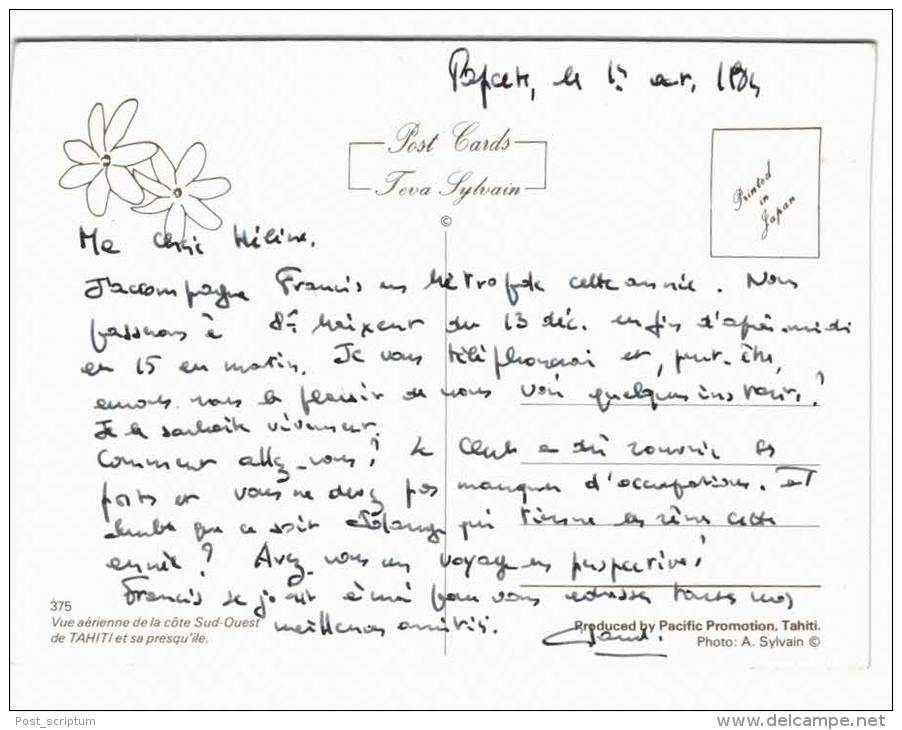 Papeete, le 1er oct. 1984
Post Cards
Teva Sylvain
©
Printed
in
Japan
Ma chère Hélène,
J'accompagne Francis en Métropole cette année. Nous
passerons à du 13 déc. en fin d'après-midi
au 15 au matin. Je vous téléphonerai et, peut-être,
aurons-nous le plaisir de vous voir quelques instants?
Je le souhaite vivement.
Comment allez-vous? Le Club a dû rouvrir ses
portes et vous ne devez pas manquer d'occupations. Est
que ce soit Solange qui tienne les rênes cette
année? Avez-vous un voyage en perspective?
Francis se joint à moi pour vous adresser toutes nos
meilleures amitiés.
375
Vue aérienne de la côte Sud-Ouest
de TAHITI et sa presqu'île.
Produced by Pacific Promotion, Tahiti.
Photo: A. Sylvain ©
Post_scriptum
www.delcampe.net